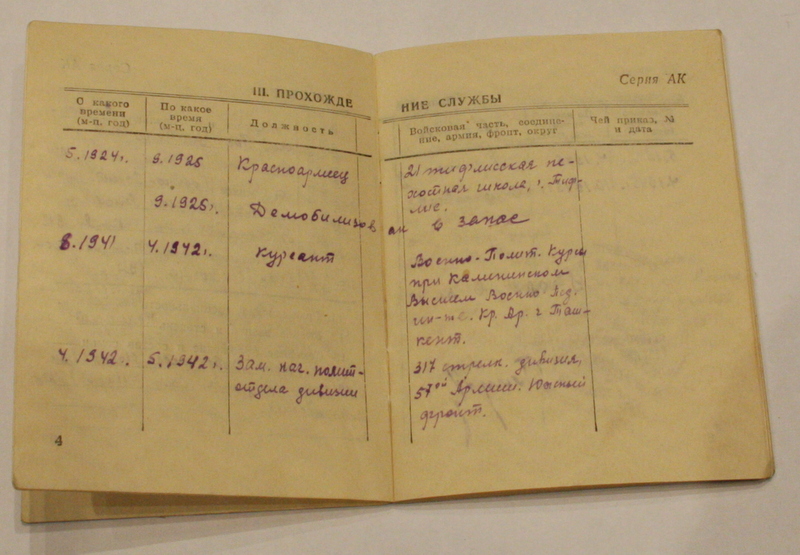 Серия АК
III. ПРОХОЖДЕ НИЕ СЛУЖБЫ
С какого времени (м-ц, год)
По какое время (м-ц, год)
Должность
Войсковая часть, соедине-
ние, армия, фронт, округ
Чей приказ, №
и дата
5.1924г. 9.1925 Красноармеец
21 тифлисская пе-
хотная школа, г. Тиф-
лис.
9.1925г. Демобилизован в запас
8.1941 4.1942г. Курсант
Военно-Полит. Курсы
при Калининском
Высшем Военно Пед.
ин-те. Кр. Ар. г Таш-
кент.
4.1942г. 5.1942г. Зам. нач. полит-
отдела дивизии
317 стрелк. дивизия,
57ой Армии. Южный
фронт.
4